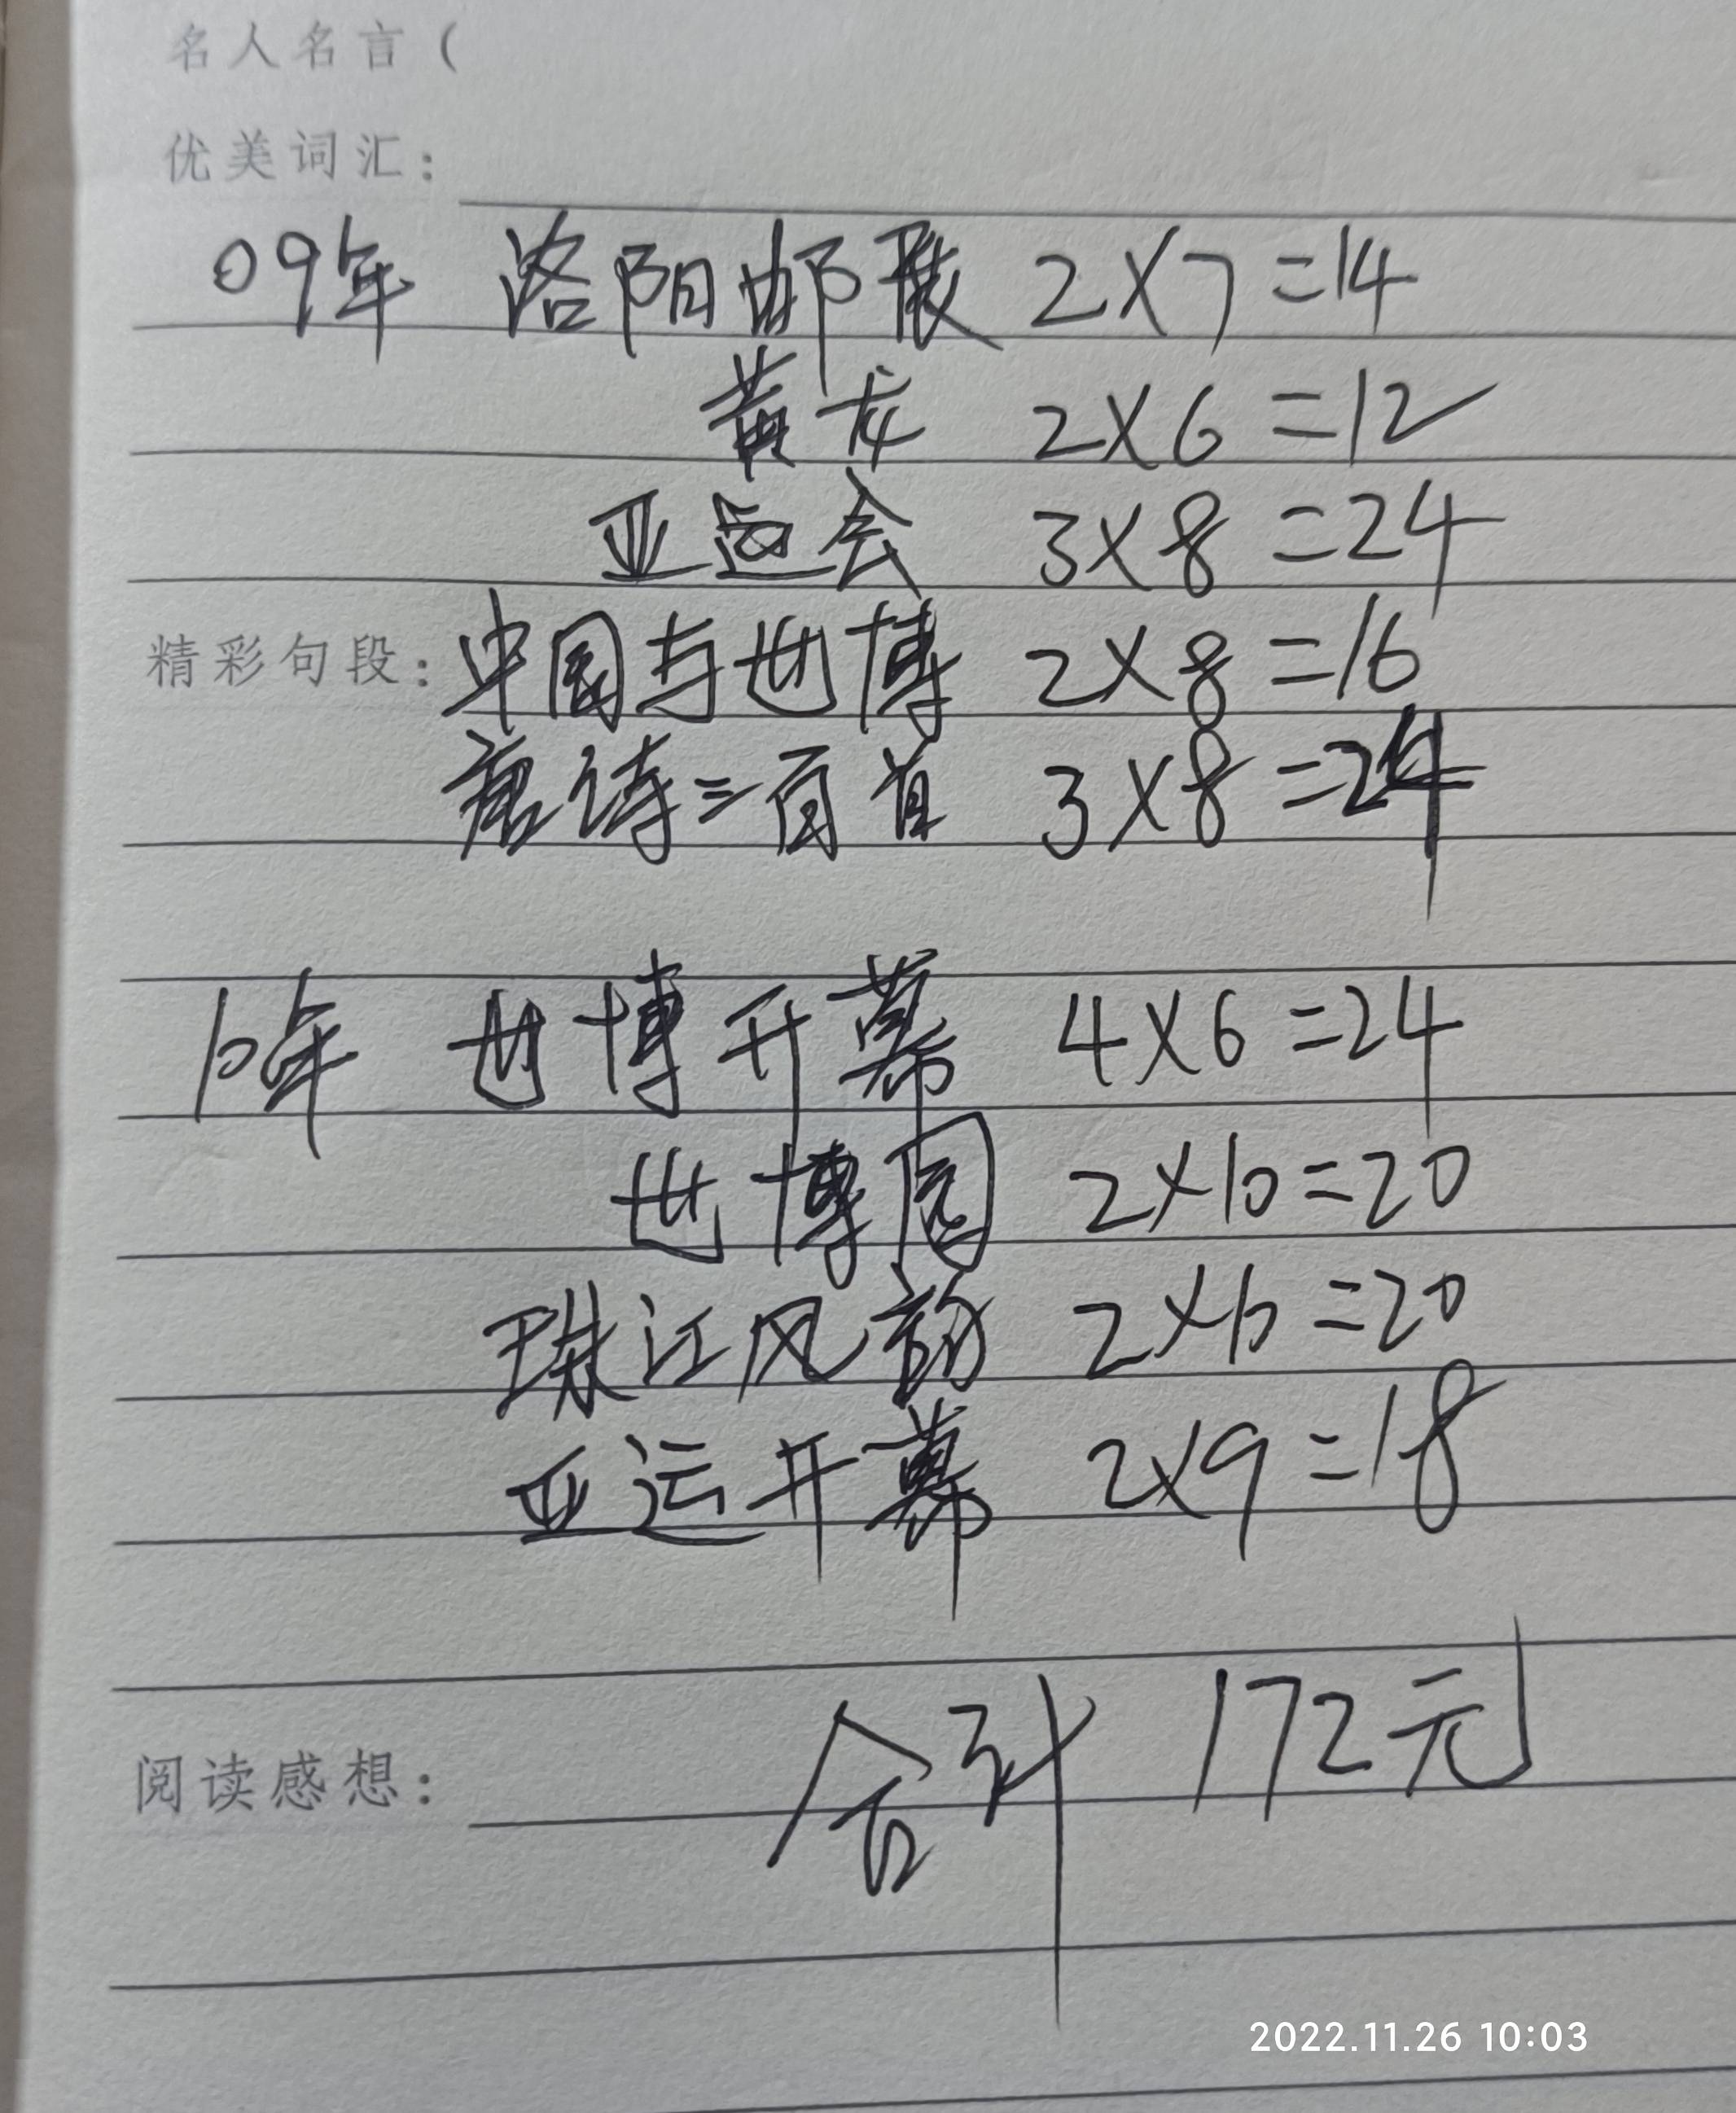 名人名言（
优美词汇：
09年 洛阳邮展 2×7=14
黄龙 2×6=12
亚运会 3×8=24
精彩句段：中国与世博 2×8=16
唐诗三百首 3×8=24
10年 世博开幕 4×6=24
世博园 2×10=20
珠江风韵 2×10=20
亚运开幕 2×9=18
阅读感想： 合计 172元
2022.11.26 10:03